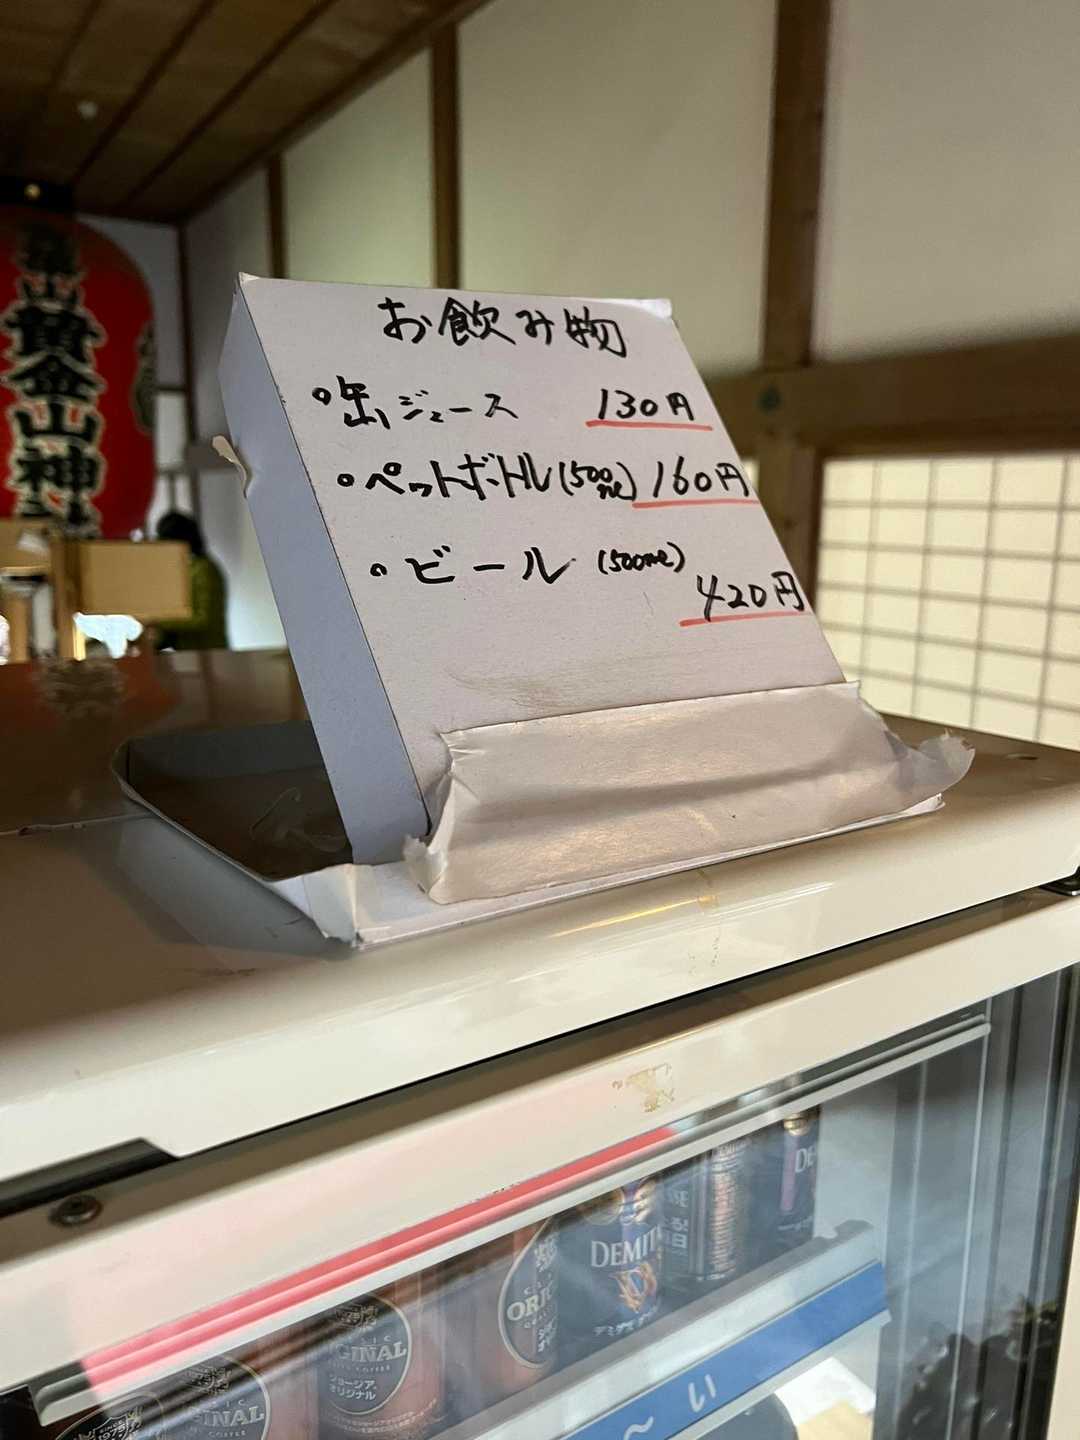 お飲み物
・缶ジュース 130円
・ペットボトル(500ml) 160円
・ビール (500ml)
420円
黄金山神
ORIGINAL
ジョージア
オリジナル
DEMIT
い